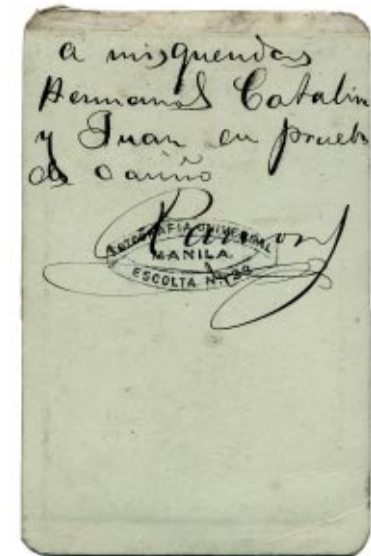 a mis queridos
Hermanos Catalin
y Juan en prueba
de cariño
Ramon
FOTOGRAFIA UNIVERSAL
MANILA
ESCOLTA Nº